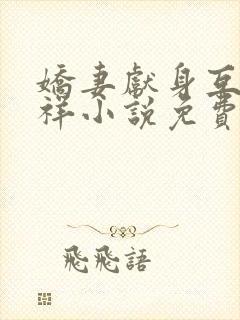 嬌妻獻身互
祥小說免費
飛飛語